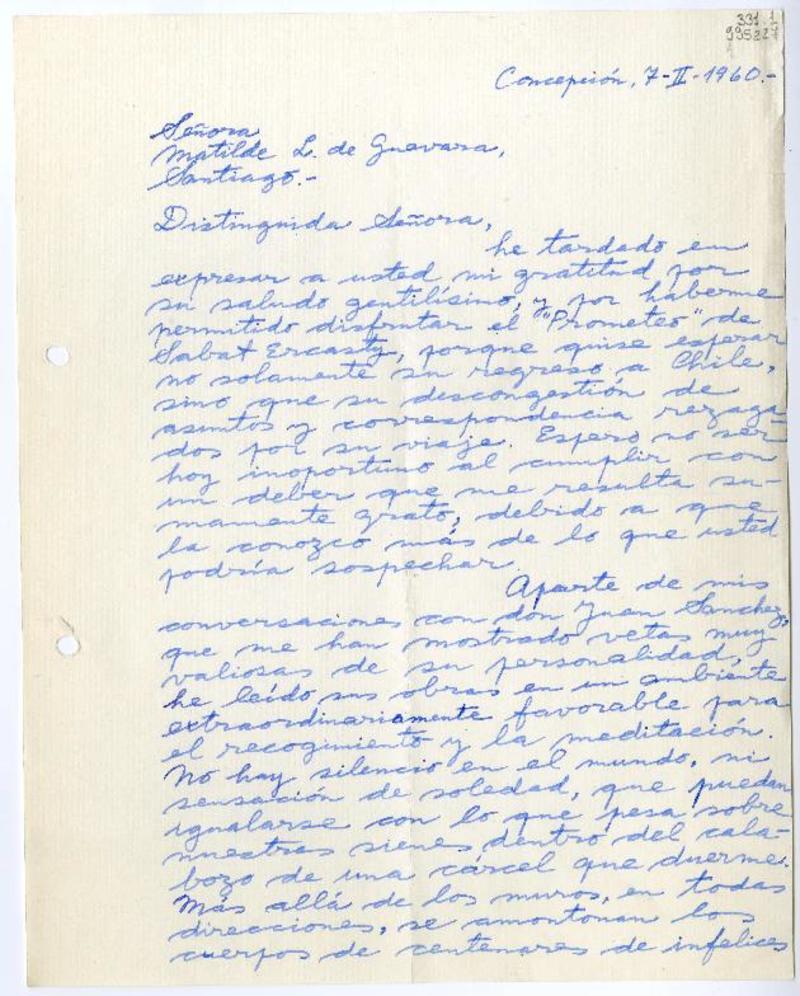 331.1
995227
Concepción, 7-II-1960.-
Señora
Matilde L. de Guevara,
Santiago.-
Distinguida Señora,
he tardado en
expresar a usted mi gratitud por
su saludo gentilísimo, y por haberme
permitido disfrutar el "Prometeo" de
Sabat Ercasty, porque quise esperar
no solamente su regreso a Chile,
sino que su descongestión de
asuntos y correspondencia rezaga-
dos por su viaje. Espero no ser
hoy inoportuno al cumplir con
un deber que me resulta su-
mamente grato, debido a que
la conozco más de lo que usted
podría sospechar.
Aparte de mis
conversaciones con don Juan Sanchez,
que me han mostrado vetas muy
valiosas de su personalidad,
he leído sus obras en un ambiente
extraordinariamente favorable para
el recogimiento y la meditación.
No hay silencio en el mundo, ni
sensación de soledad, que puedan
igualarse con lo que pesa sobre
nuestras sienes dentro del cala-
bozo de una cárcel que duerme.
Más allá de los muros, en todas
direcciones, se amontonan los
cuerpos de centenares de infelices